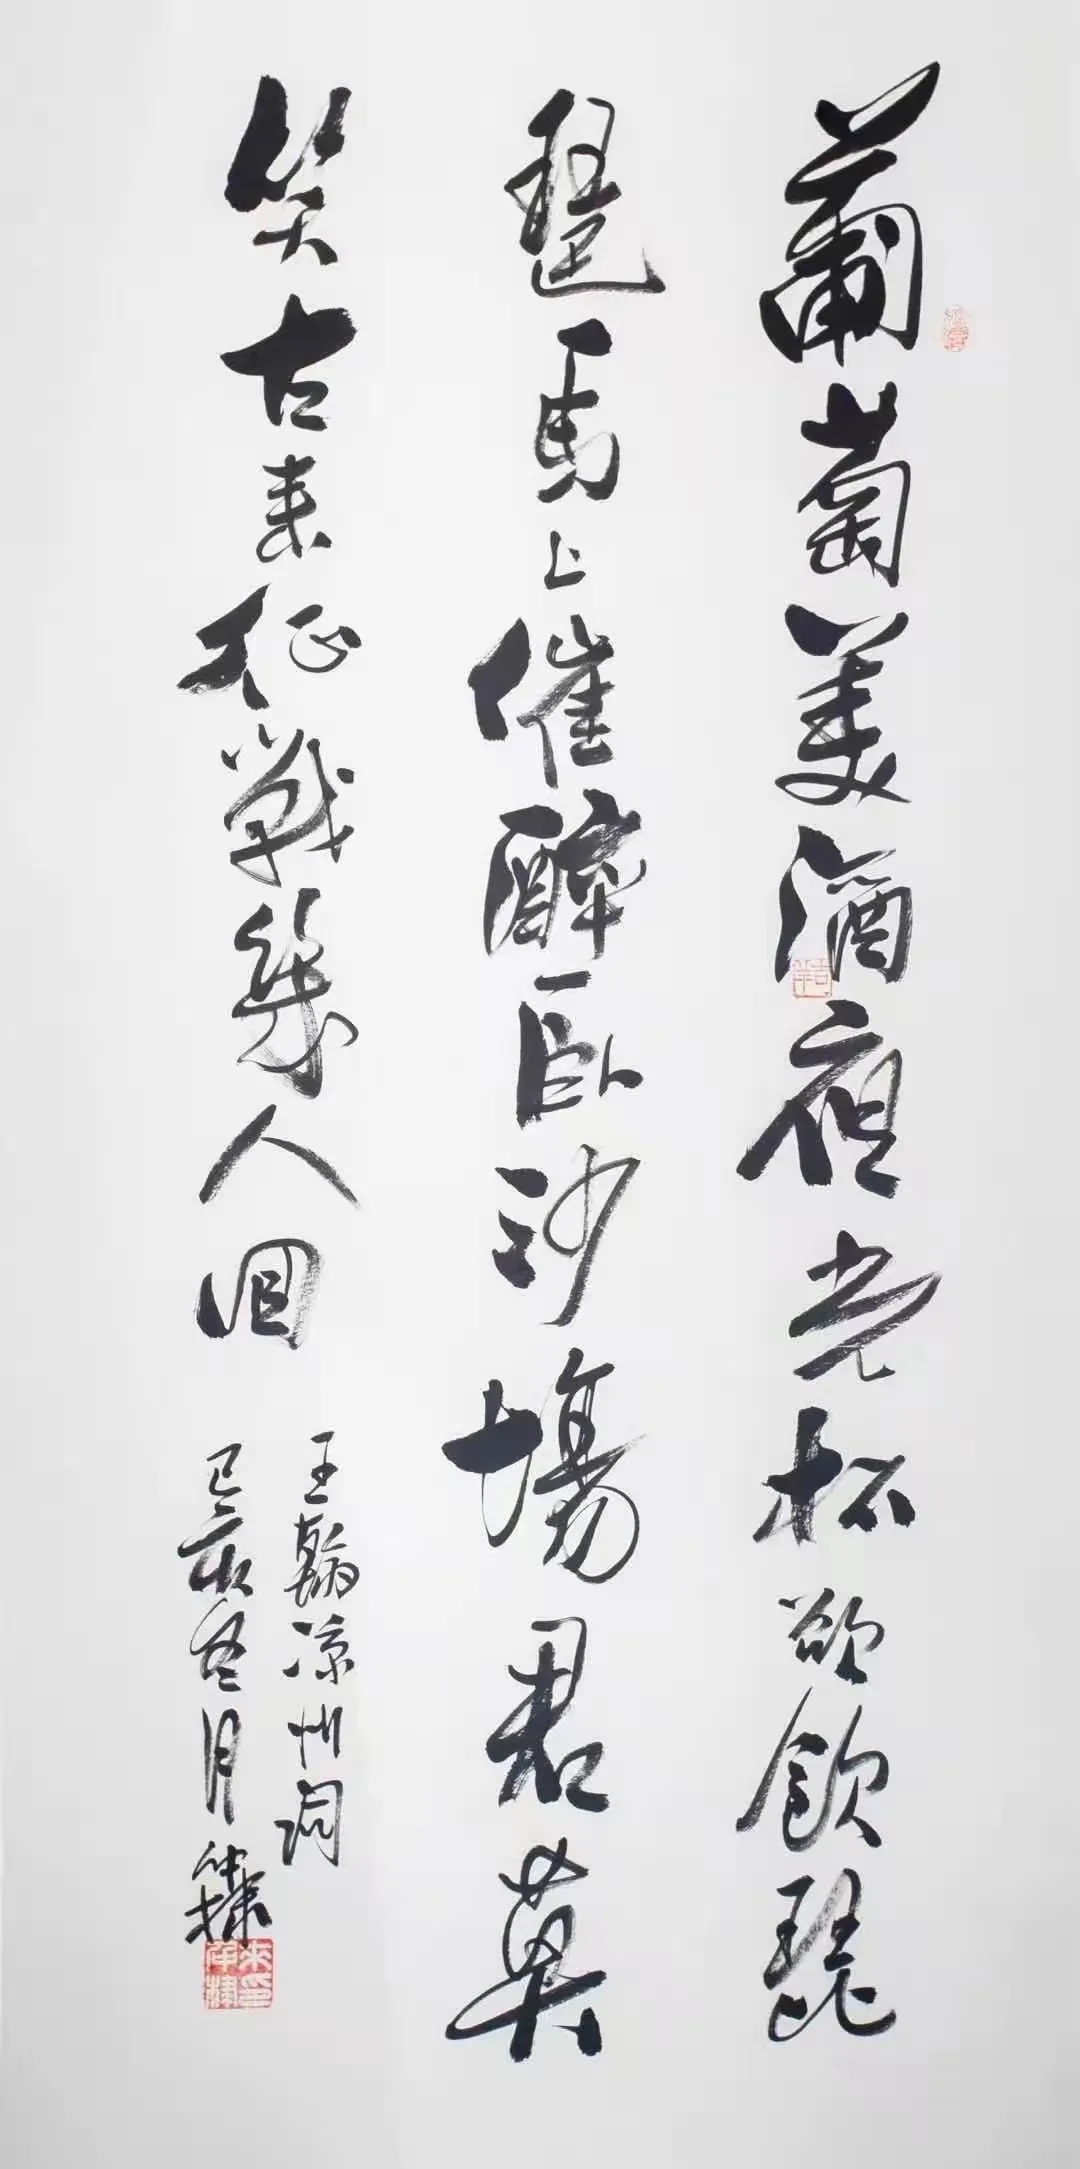 葡萄美酒夜光杯欲飲琵
琶馬上催醉臥沙場君莫
笑古来征戰幾人回
王翰凉州詞
己亥冬月
吉羊